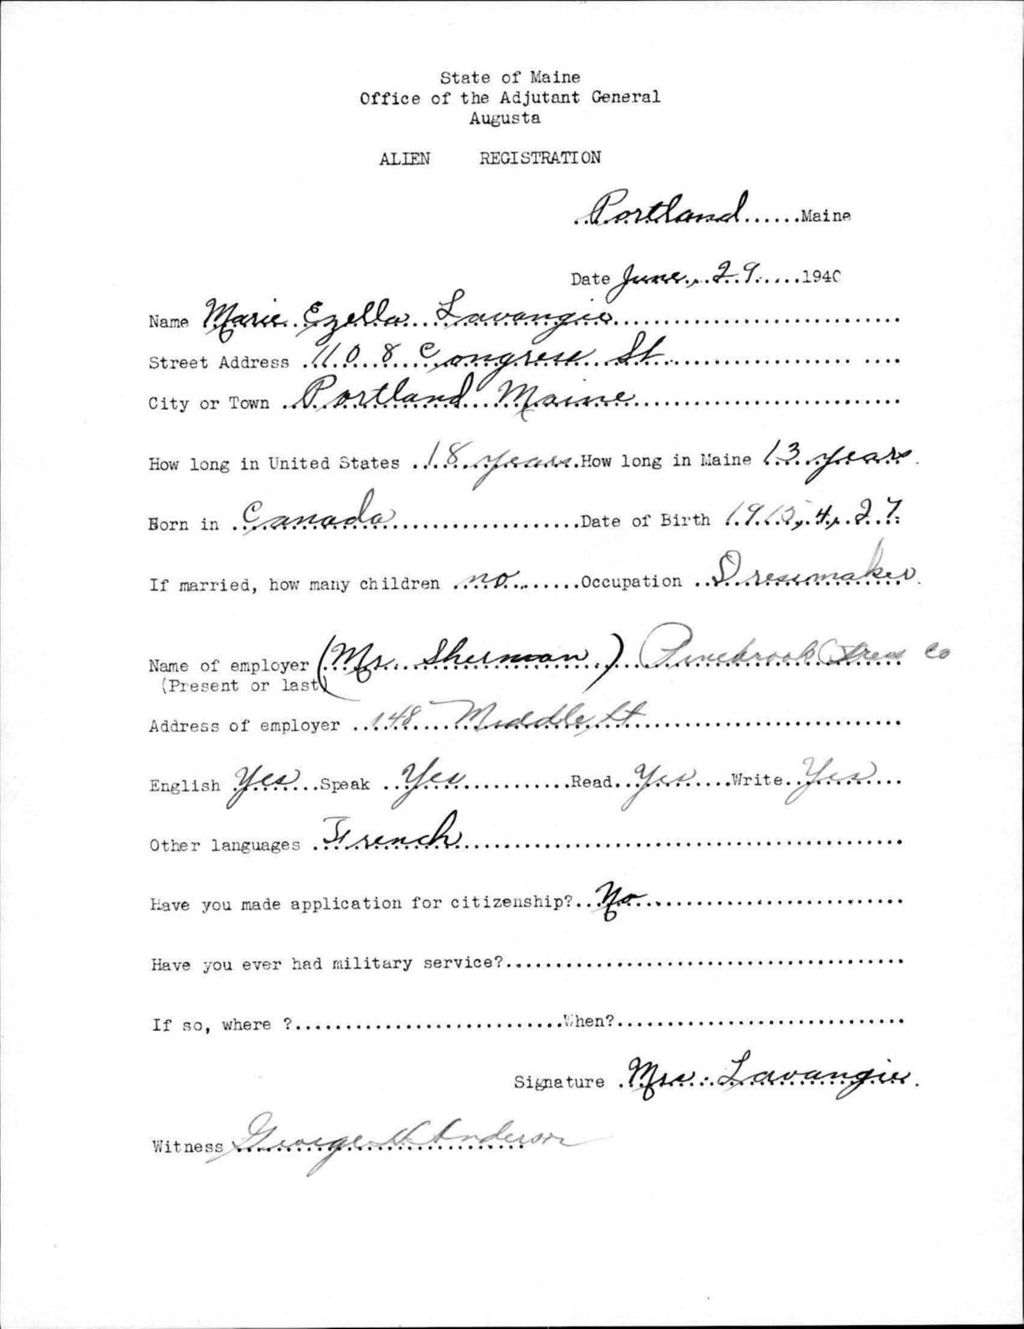 State of Maine
Office of the Adjutant General
Augusta
ALIEN REGISTRATION
Portland Maine
Date June 29 1940
Name Marie Ezella Lavangie
Street Address 1108 Congress St.
City or Town Portland Maine
How long in United States 18 years How long in Maine 13 years
Born in Canada Date of Birth 4, 27.
If married, how many children no Occupation Dressmaker
Name of employer (Mr. Sherman) Pinebrook Dress Co
(Present or last)
Address of employer 148 Middle St
English Yes Speak Yes Read Yes Write Yes
Other languages French
Have you made application for citizenship? No
Have you ever had military service?
If so, where ? When?
Signature Mrs. Lavangie
Witness George Anderson